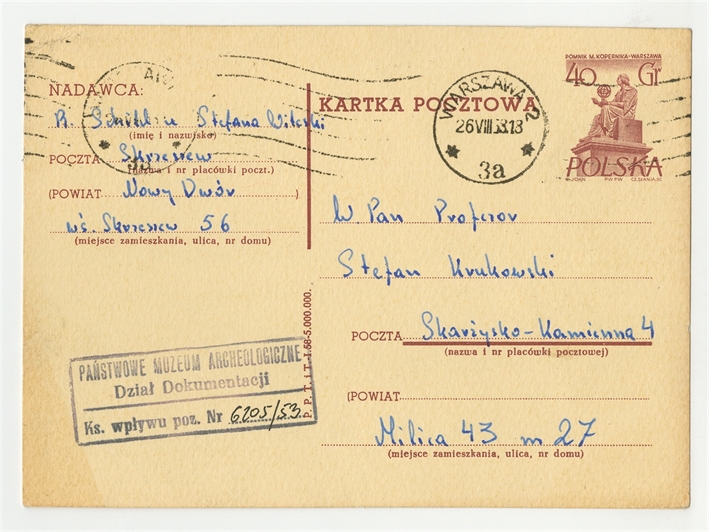 POMNIK M. KOPERNIKA-WARSZAWA
40 Gr
POLSKA
WARSZAWA 2
26 VIII 13
3a
KARTKA POCZTOWA
NADAWCA:
Stefana
(imię i nazwisko)
POCZTA Skrzeszew
(nazwa i nr placówki poczt.)
(POWIAT Nowy Dwór )
wś. Skrzeszew 56
(miejsce zamieszkania, ulica, nr domu)
W. Pan Profesor
Stefan Krukowski
POCZTA Skarżysko-Kamienna 4
(nazwa i nr placówki pocztowej)
(POWIAT )
Milica 43 m 27
(miejsce zamieszkania, ulica, nr domu)
P. P. T. i T. -5.000.000.
PAŃSTWOWE MUZEUM ARCHEOLOGICZNE
Dział Dokumentacji
Ks. wpływu poz. Nr 6205/53